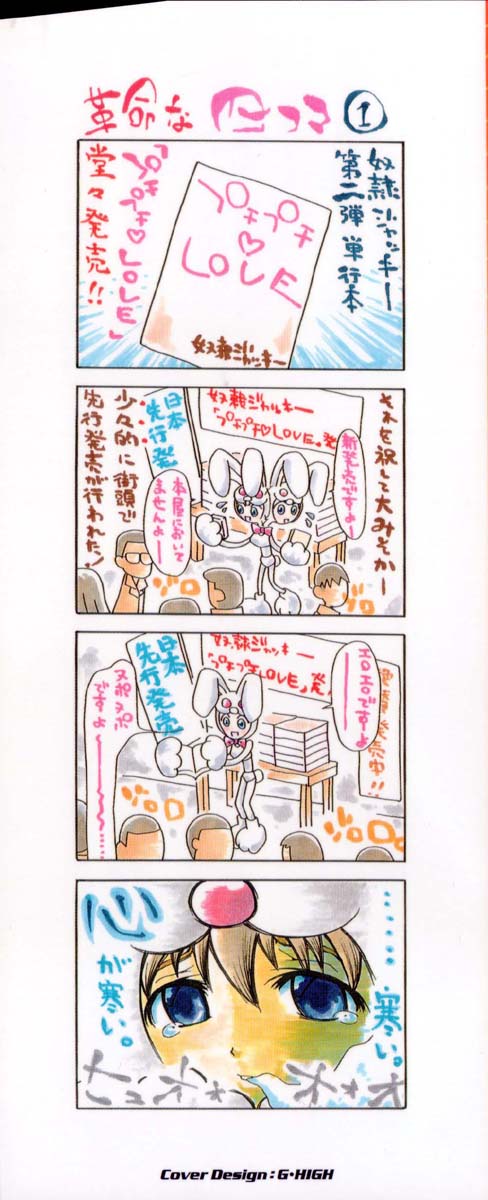 革命な
1
奴隷ジャッキー
第二弾 単行本
プチプチ
♡
LOVE
奴隷ジャッキー
「プチプチ♡LOVE」
堂々発売!!
それを祝して大みそかー
奴隷ジャッキー
「プチプチ♡LOVE」発
新発売ですよー
日本
先行発
本屋において
ませんよー
少々的に街頭で
先行発売が行われた!
ゾロ
ゾロ
エロエロですよー
奴隷ジャッキー
「プチプチLOVE」発
発売中!!
日本
先行発売
ヌポヌポ
ですよー
ゾロロ
ゾロ
……寒い。
心
が寒い。
Cover Design : G・HIGH